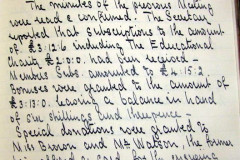 The minutes of the previous Meeting
were read & confirmed. The Secretary
reported that subscriptions to the amount
of £3:12:6 including The Educational
Charity £2:0:0. had been received –
Members Subs. amounted to £4.15.2.
Bonuses were granted to the amount of
£3:13:0. leaving a balance in hand
of six shillings and threepence –
Special donations were granted to
Miss Brown and Mrs Watson, the former